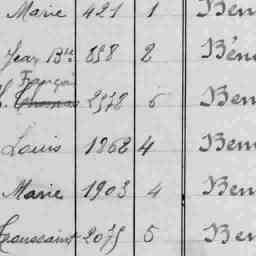 Marie 421 1 Ben
Jean Bte 858 2 Bén
François
Thomas 2978 6 Ben
Louis 1868 4 Ben
Marie 1903 4 Ben
Toussaint 2075 5 Ben